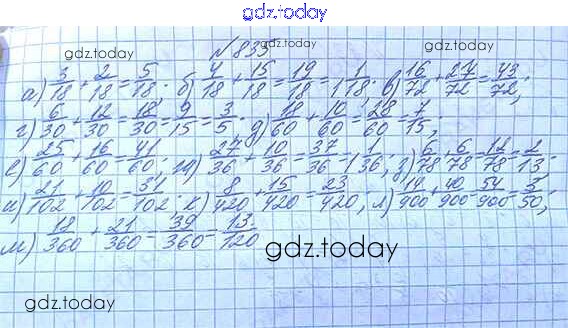 gdz.today
gdz.today gdz.today
№ 835
а) 3/18 + 2/18 = 5/18. б) 4/18 + 15/18 = 19/18 = 1 1/18. в) 16/72 + 27/72 = 43/72;
г) 6/30 + 12/30 = 18/30 = 9/15 = 3/5. д) 18/60 + 10/60 = 28/60 = 7/15;
е) 25/60 + 16/60 = 41/60. ж) 27/36 + 10/36 = 37/36 = 1 1/36, з) 6/78 + 6/78 = 12/78 = 2/13.
и) 21/102 + 10/102 = 31/102. к) 8/420 + 15/420 = 23/420; л) 14/900 + 40/900 = 54/900 = 5/50;
м) 18/360 + 21/360 = 39/360 = 13/120
gdz.today
gdz.today